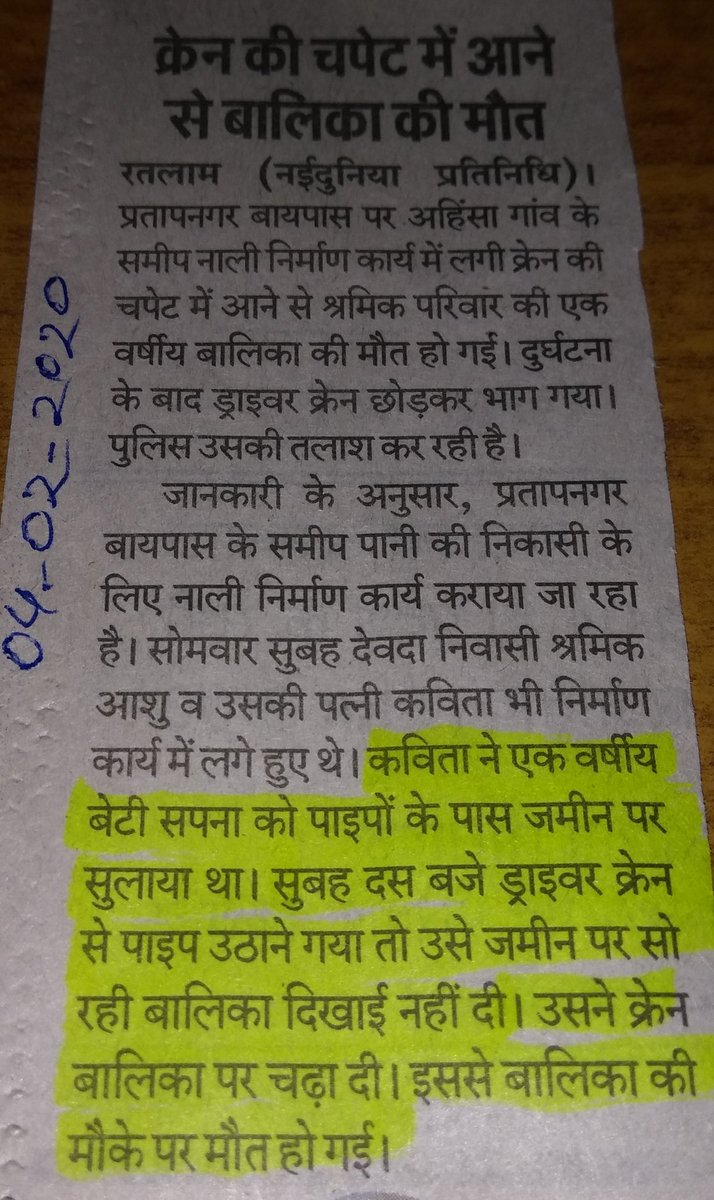 क्रेन की चपेट में आने
से बालिका की मौत
रतलाम (नईदुनिया प्रतिनिधि)।
प्रतापनगर बायपास पर अहिंसा गांव के
समीप नाली निर्माण कार्य में लगी क्रेन की
चपेट में आने से श्रमिक परिवार की एक
वर्षीय बालिका की मौत हो गई। दुर्घटना
के बाद ड्राइवर क्रेन छोड़कर भाग गया।
पुलिस उसकी तलाश कर रही है।
जानकारी के अनुसार, प्रतापनगर
बायपास के समीप पानी की निकासी के
लिए नाली निर्माण कार्य कराया जा रहा
है। सोमवार सुबह देवदा निवासी श्रमिक
आशु व उसकी पत्नी कविता भी निर्माण
कार्य में लगे हुए थे। कविता ने एक वर्षीय
बेटी सपना को पाइपों के पास जमीन पर
सुलाया था। सुबह दस बजे ड्राइवर क्रेन
से पाइप उठाने गया तो उसे जमीन पर सो
रही बालिका दिखाई नहीं दी। उसने क्रेन
बालिका पर चढ़ा दी। इससे बालिका की
मौके पर मौत हो गई।
04-02-2020